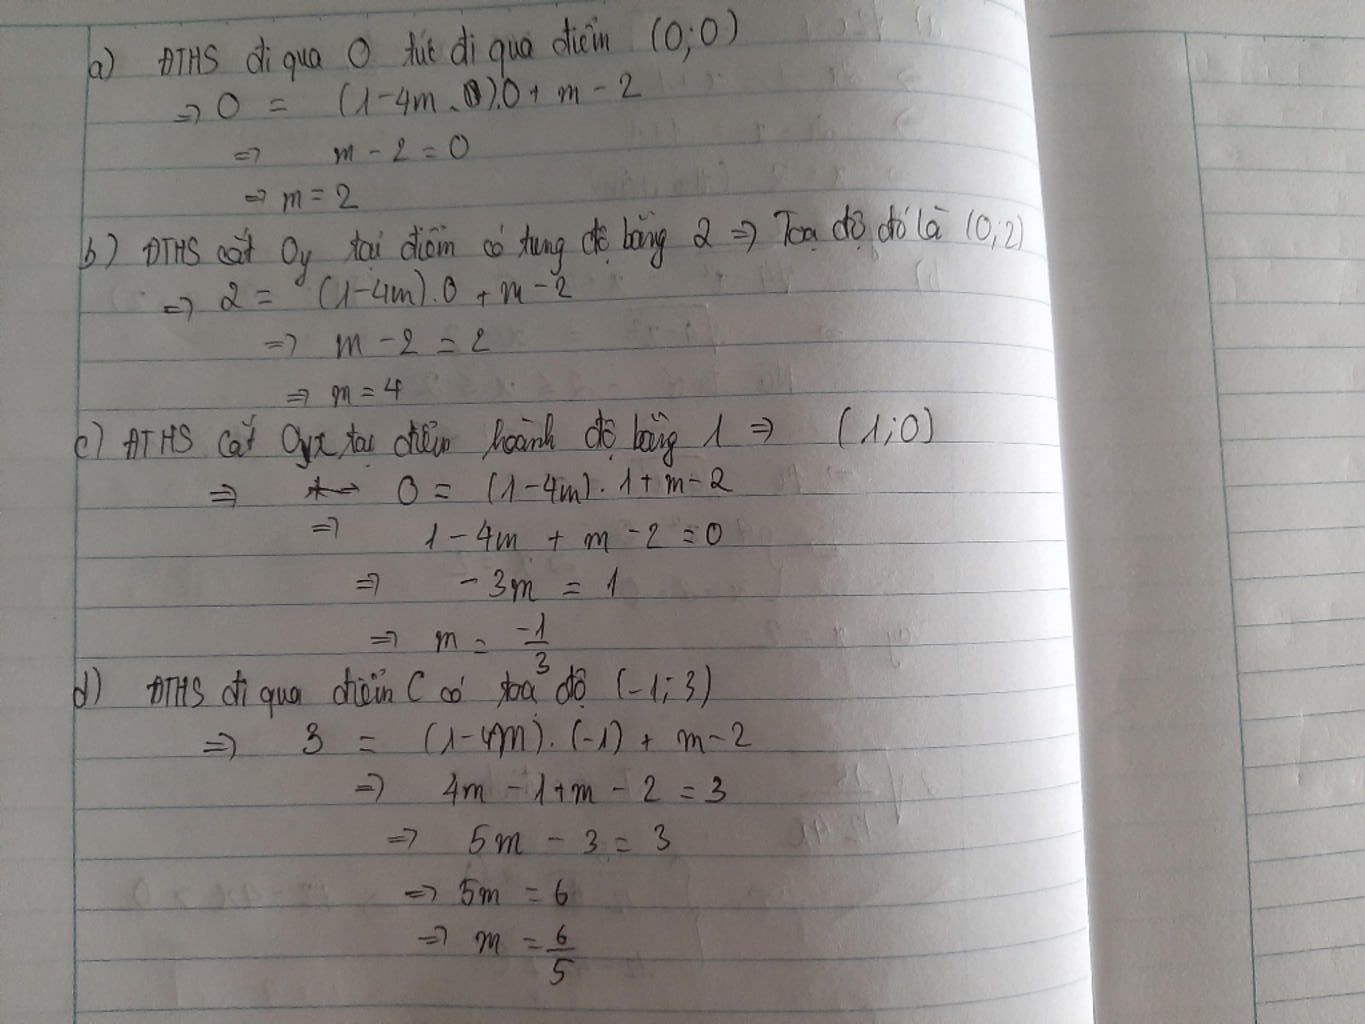 a) ĐTHS đi qua O tức đi qua điểm (0;0)
=> 0 = (1-4m.0).0 + m - 2
=> m - 2 = 0
=> m = 2
b) ĐTHS cắt Oy tại điểm có tung độ bằng 2 => Toạ độ đó là (0;2)
=> 2 = (1-4m).0 + m - 2
=> m - 2 = 2
=> m = 4
c) ĐTHS cắt Ox tại điểm hoành độ bằng 1 => (1;0)
=> 0 = (1-4m).1 + m - 2
=> 1 - 4m + m - 2 = 0
=> -3m = 1
=> m = -1/3
d) ĐTHS đi qua điểm C có toạ độ (-1;3)
=> 3 = (1-4m).(-1) + m - 2
=> 4m - 1 + m - 2 = 3
=> 5m - 3 = 3
=> 5m = 6
=> m = 6/5